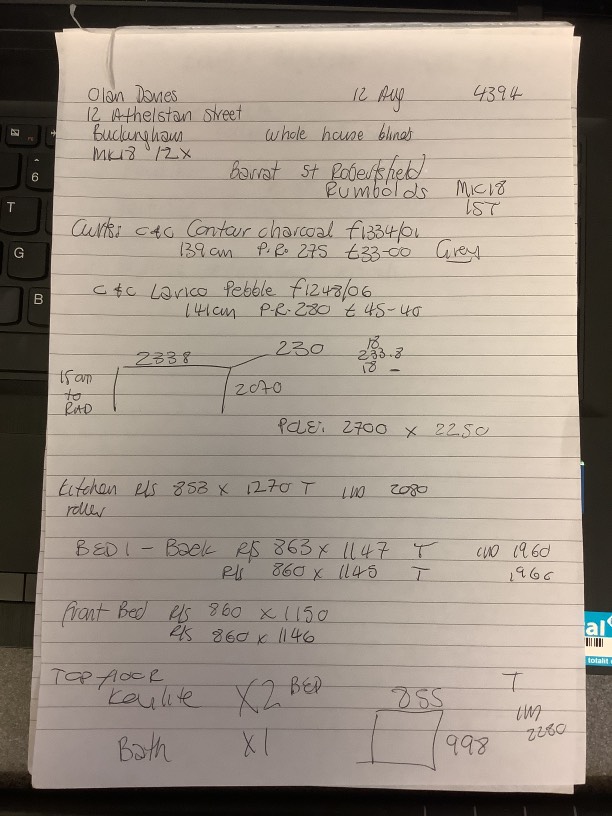 Olan Danes 12 Aug 4394
12 Athelstan Street
Buckingham whole house blinds
MK18 12X
Barrat St Robertsfield
Rumbolds MK18
1ST
c+c Contour charcoal f1334/01
139cm P.R. 275 £33-00 Grey
c+c Larico Pebble f1248/06
141cm P.R. 280 £45-40
2338 230 18
233.8
18 -
15cm
to
RAD
2070
POLE: 2700 x 2250
Kitchen R/S 853 x 1270 T 2080
roller
BED 1 - Back R/S 863 x 1147 T 1960
R/S 860 x 1145 T 1960
front Bed R/S 860 x 1150
R/S 860 x 1146
TOP FLOOR
X2 BED 855 T
2280
Bath X1 998
6
T
G
B
al
totalit